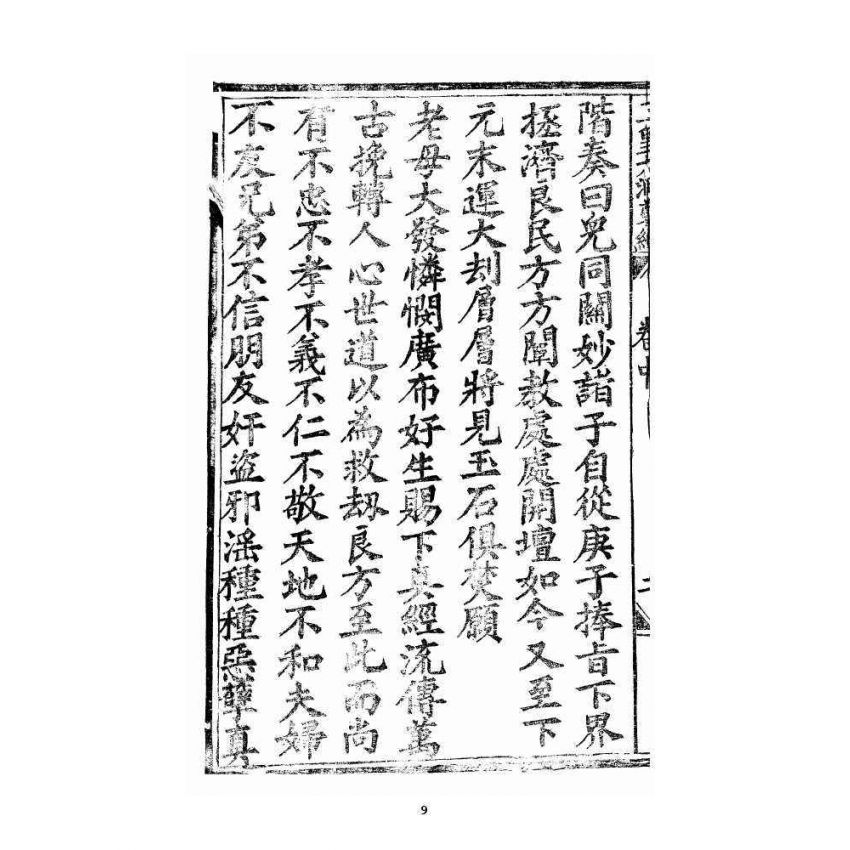 階奏曰兒同關妙諧子自從庚子捧旨下界
拯濟良民方方闡教處處開壇如今又至下
元末運大刦層層將見玉石俱焚願
老母大發憐憫廣布好生賜下真經流傳萬
古挽轉人心世道以為救劫良方至此而尚
有不忠不孝不義不仁不敬天地不和夫婦
不友兄弟不信朋友奸盜邪淫種種惡孽真
卷中
9